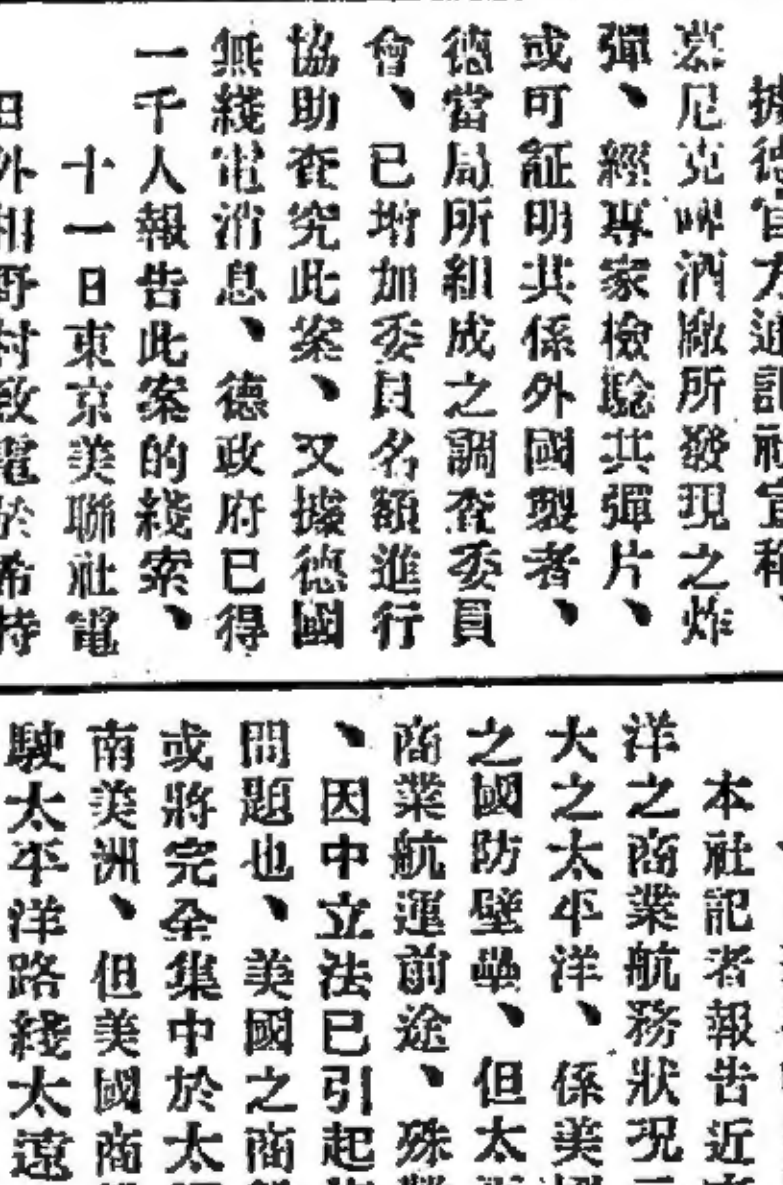 據德官方通訊社宣稱、
慕尼克啤酒廠所發現之炸
彈、經專家檢驗其彈片、
或可証明其係外國製者、
德當局所組成之調查委員
會、已增加委員名額進行
協助查究此案、又據德國
無綫電消息、德政府已得
一千人報告此案的綫索、
十一日東京美聯社電
日外相野村致電於希特
本社記者報告近
洋之商業航務狀况
大之太平洋、係美
之國防壁壘、但太
商業航運前途、殊
、因中立法已引起
問題也、美國之商
或將完全集中於太
南美洲、但美國商
駛太平洋路綫太遠